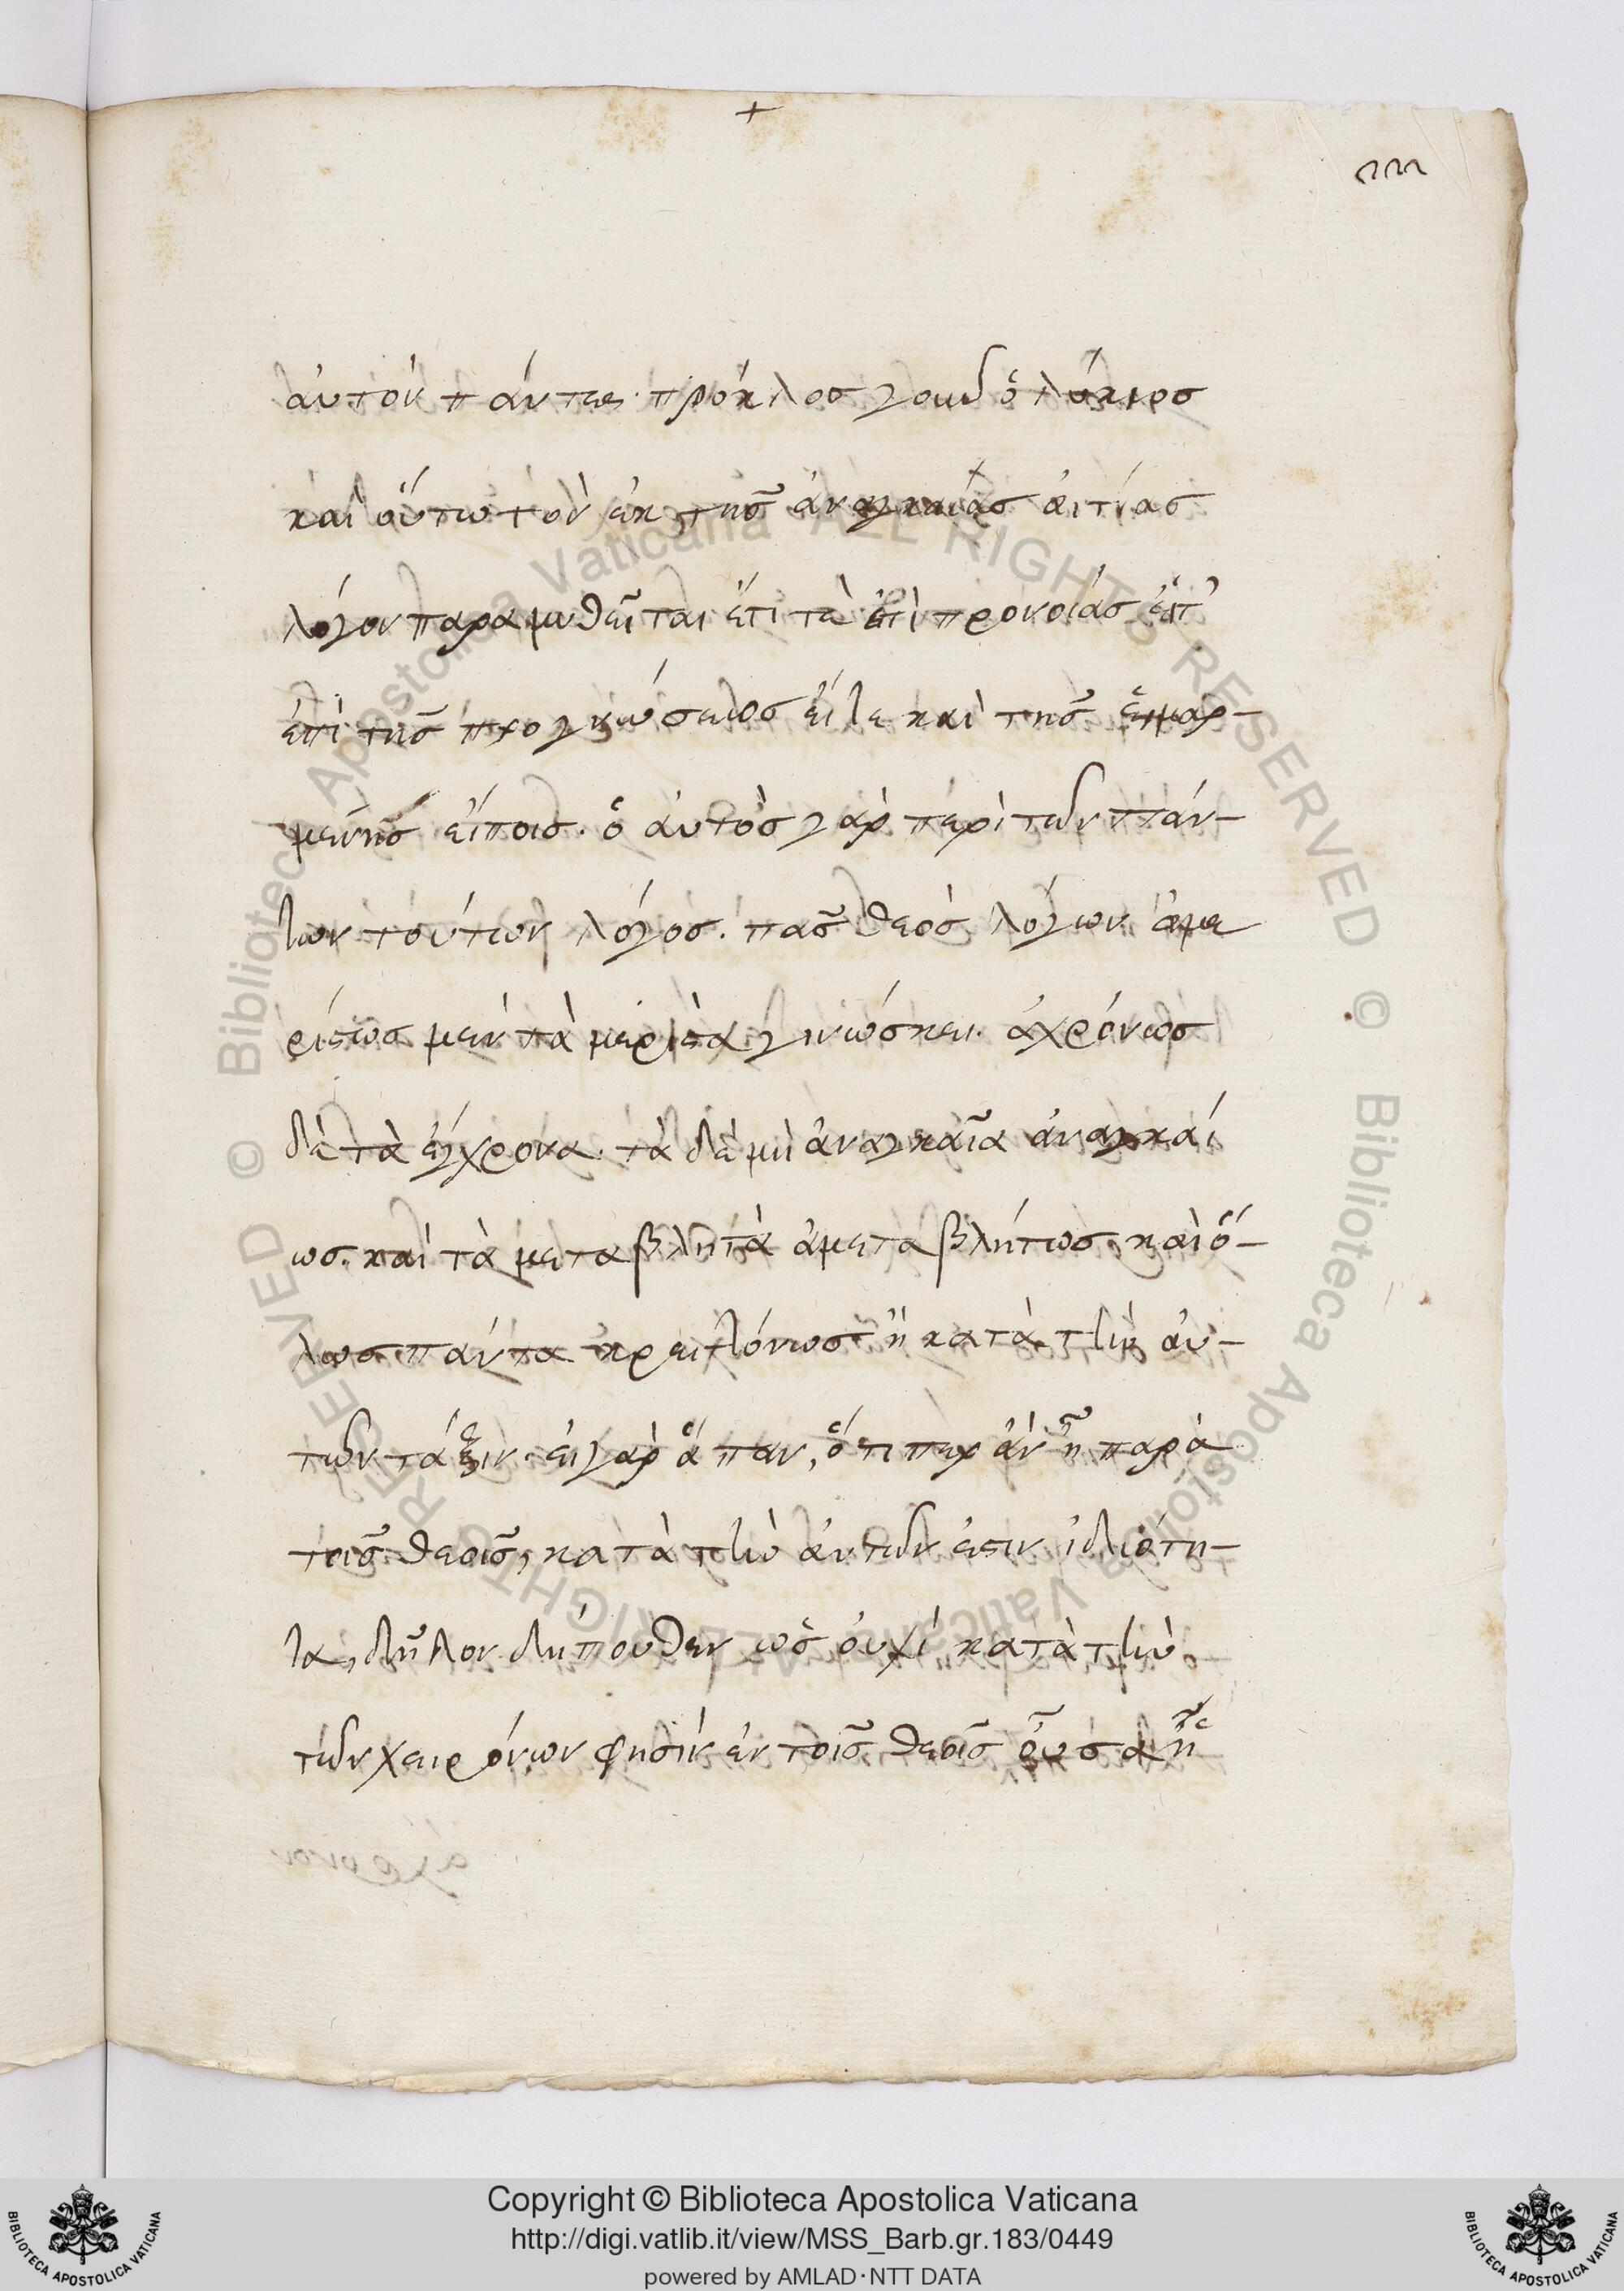 +
αὐτὸν πάντες. πρόκλος γοῦν ὁ λύκιος
καὶ οὕτω τὸν ἐκ τῆς ἀναγκαίας αἰτίας
λόγον παραμυθεῖται ἔτι τὲ ἐπὶ προνοίας εἴτ'
ἐπὶ τῆς προγνώσεως εἴτε καὶ τῆς εἱμαρ-
μένης εἴποις. ὁ αὐτὸς γὰρ περὶ τῶν πάν-
των τούτων λόγος. πᾶς θεός λόγων ἀμε
ρίστως μὲν τὰ μεριστὰ γινώσκει. ἀχρόνως
δὲ τὰ ἔγχρονα. τὰ δὲ μὴ ἀναγκαῖα ἀναγκαί
ως. καὶ τὰ μεταβλητὰ ἀμεταβλήτως. καὶ ὅ-
λως πάντα κρειττόνως ἢ κατὰ τὴν αὐ-
τῶν τάξιν. εἰ γὰρ ἅπαν, ὅτι περ ἂν ᾖ παρὰ
τοῖς θεοῖς, κατὰ τὴν αὐτῶν ἐστιν ἰδιότη-
τα, δῆλον δήπουθεν ὡς οὐχὶ κατὰ τὴν
τῶν χειρόνων φησὶν ἐν τοῖς θεοῖς οὖσα ἡ
Copyright © Biblioteca Apostolica Vaticana
http://digi.vatlib.it/view/MSS_Barb.gr.183/0449
powered by AMLAD·NTT DATA
BIBLIOTECA APOSTOLICA VATICANA
BIBLIOTECA APOSTOLICA VATICANA
© Biblioteca Apostolica Vaticana ALL RIGHTS RESERVED © Biblioteca Apostolica Vaticana ALL RIGHTS RESERVED